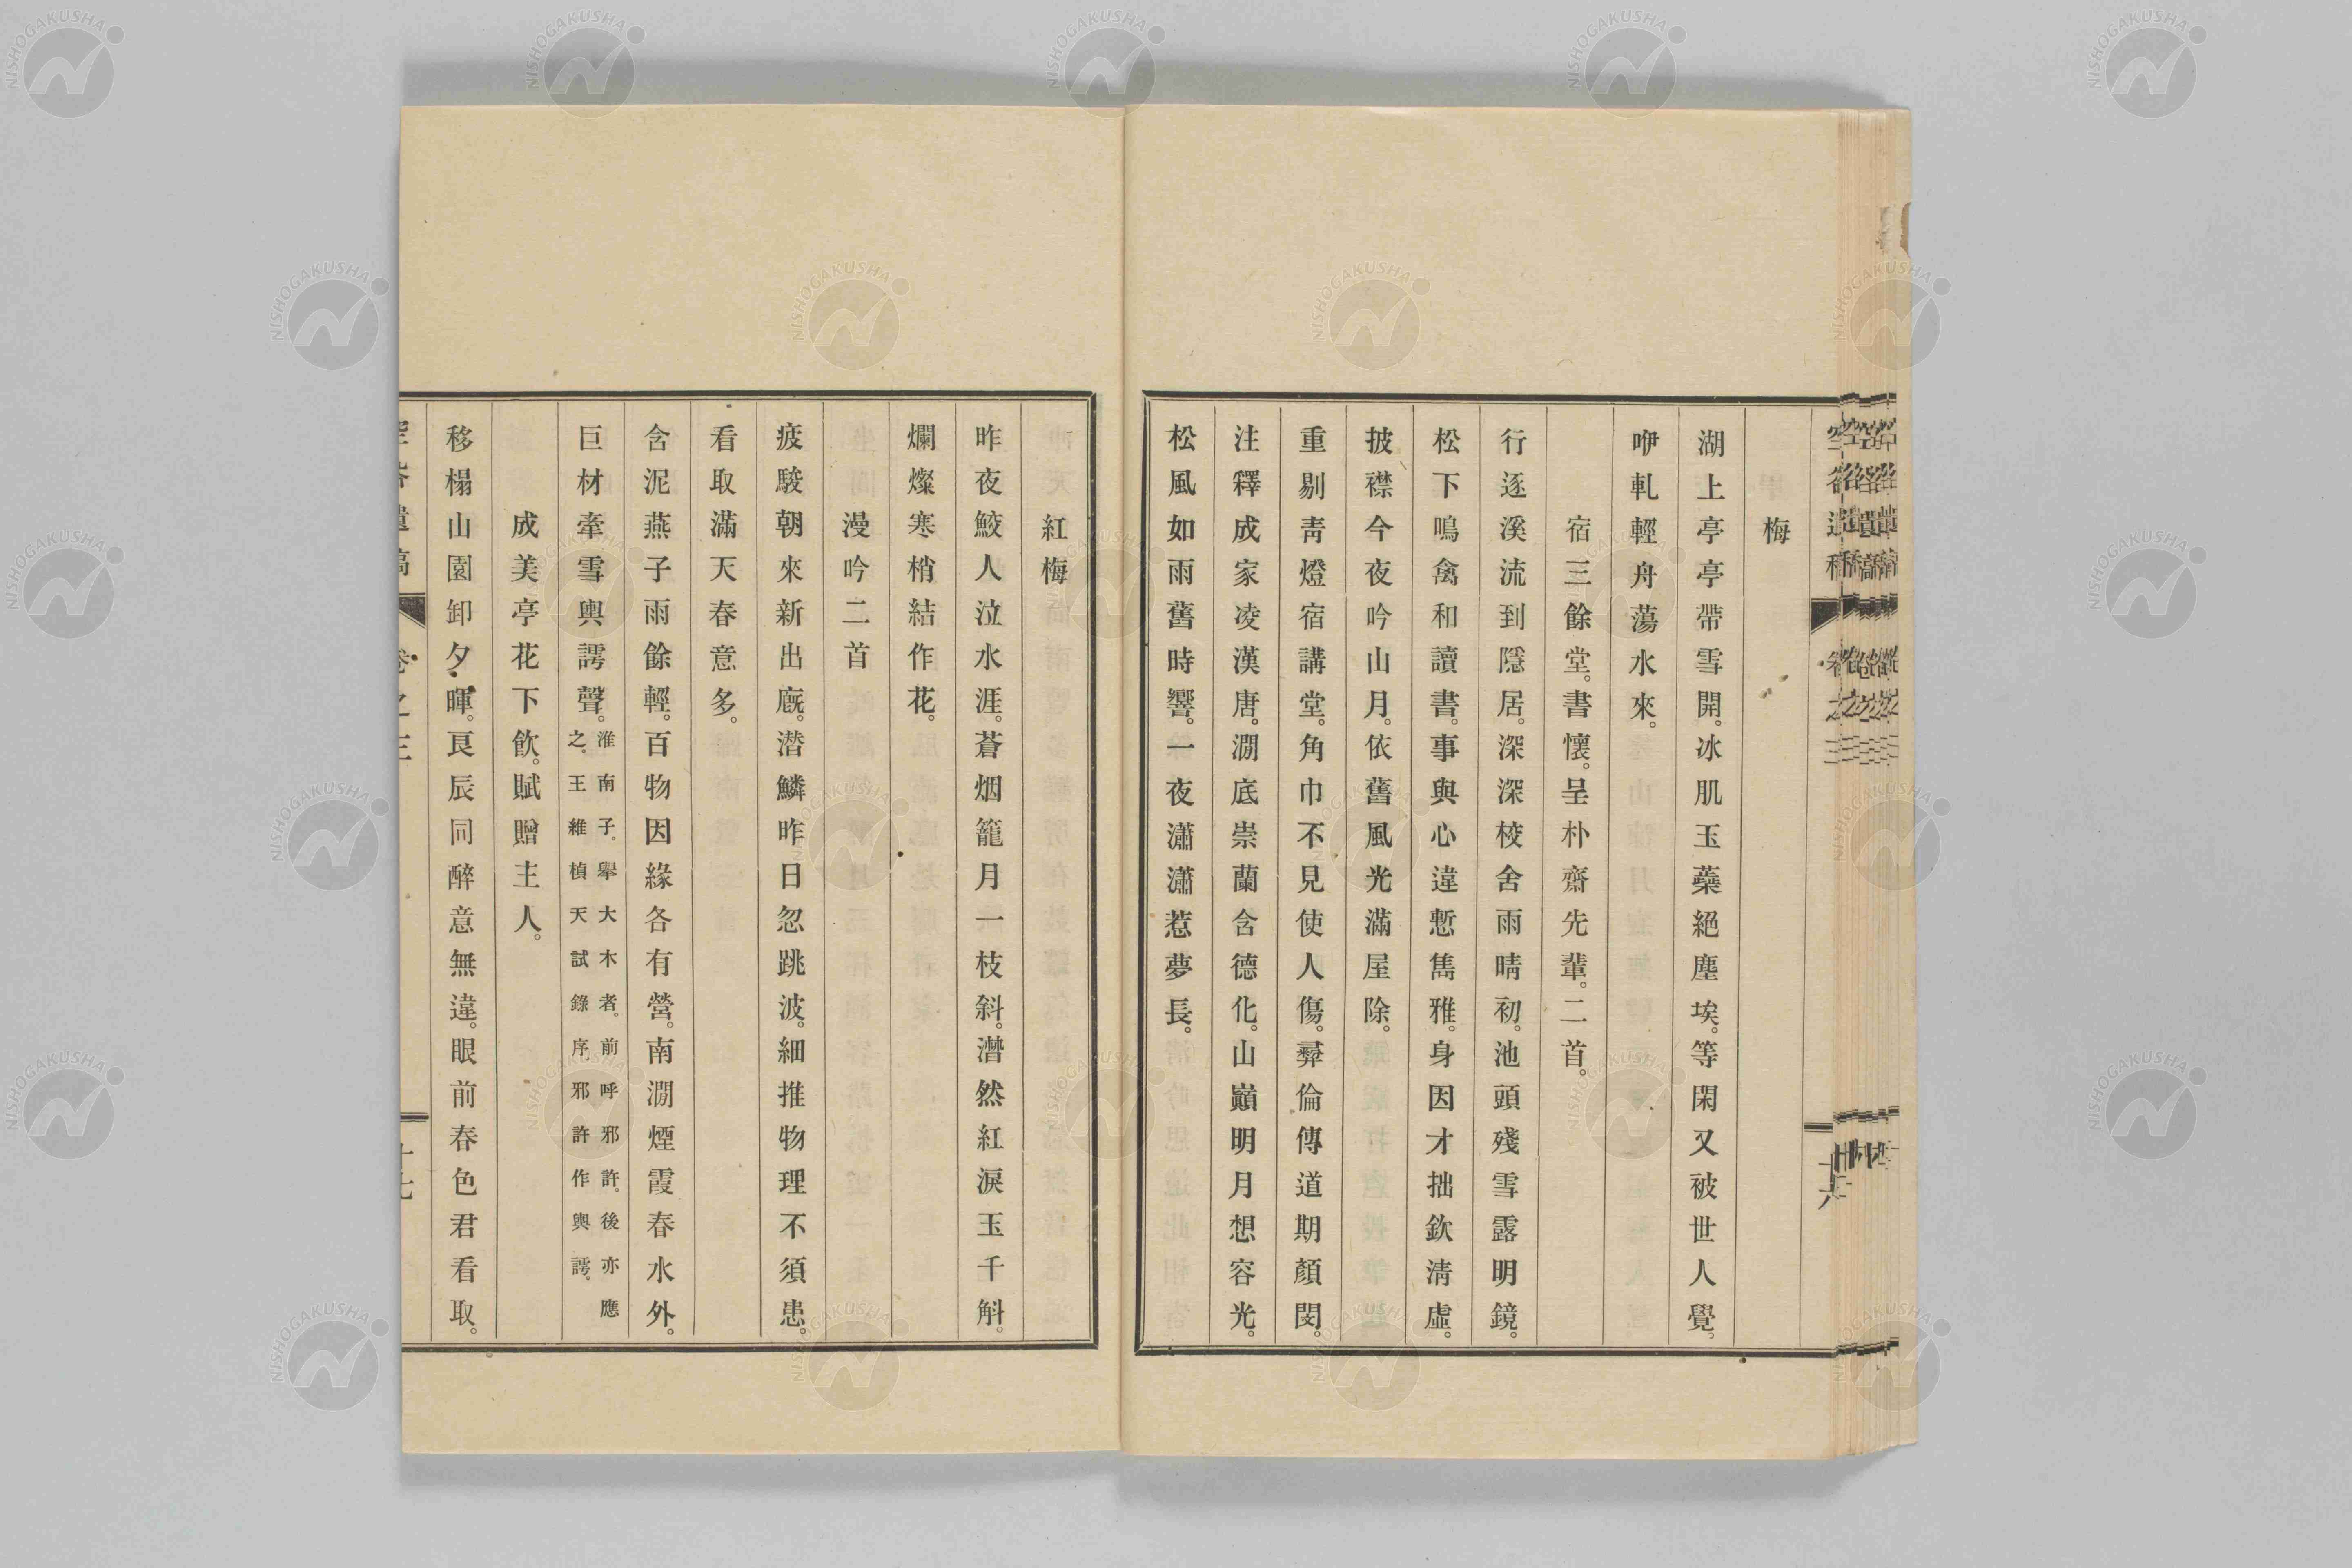 梅
湖上亭亭帶雪開。冰肌玉蘂絕塵埃。等閑又被世人覺。
咿軋輕舟蕩水來。
宿三餘堂。書懷。呈朴齋先輩。二首。
行逐溪流到隱居。深深校舍雨晴初。池頭殘雪露明鏡。
松下鳴禽和讀書。事與心違慙雋雅。身因才拙欽淸虛。
披襟今夜吟山月。依舊風光滿屋除。
重剔靑燈宿講堂。角巾不見使人傷。彛倫傳道期顏閔。
注釋成家凌漢唐。澗底崇蘭含德化。山巓明月想容光。
松風如雨舊時響。一夜瀟瀟惹夢長。
紅梅
昨夜鮫人泣水涯。蒼烟籠月一枝斜。潸然紅淚玉千斛。
爛燦寒梢結作花。
漫吟二首
疲駿朝來新出廐。潛鱗昨日忽跳波。細推物理不須患。
看取滿天春意多。
含泥燕子雨餘輕。百物因緣各有營。南澗煙霞春水外。
巨材牽雪輿謣聲。淮南子。擧大木者。前呼邪許。後亦應
之。王維楨天試錄序邪許作輿謣。
成美亭花下飮。賦贈主人。
移榻山園卸夕暉。良辰同醉意無違。眼前春色君看取。
NISHOGAKUSHA